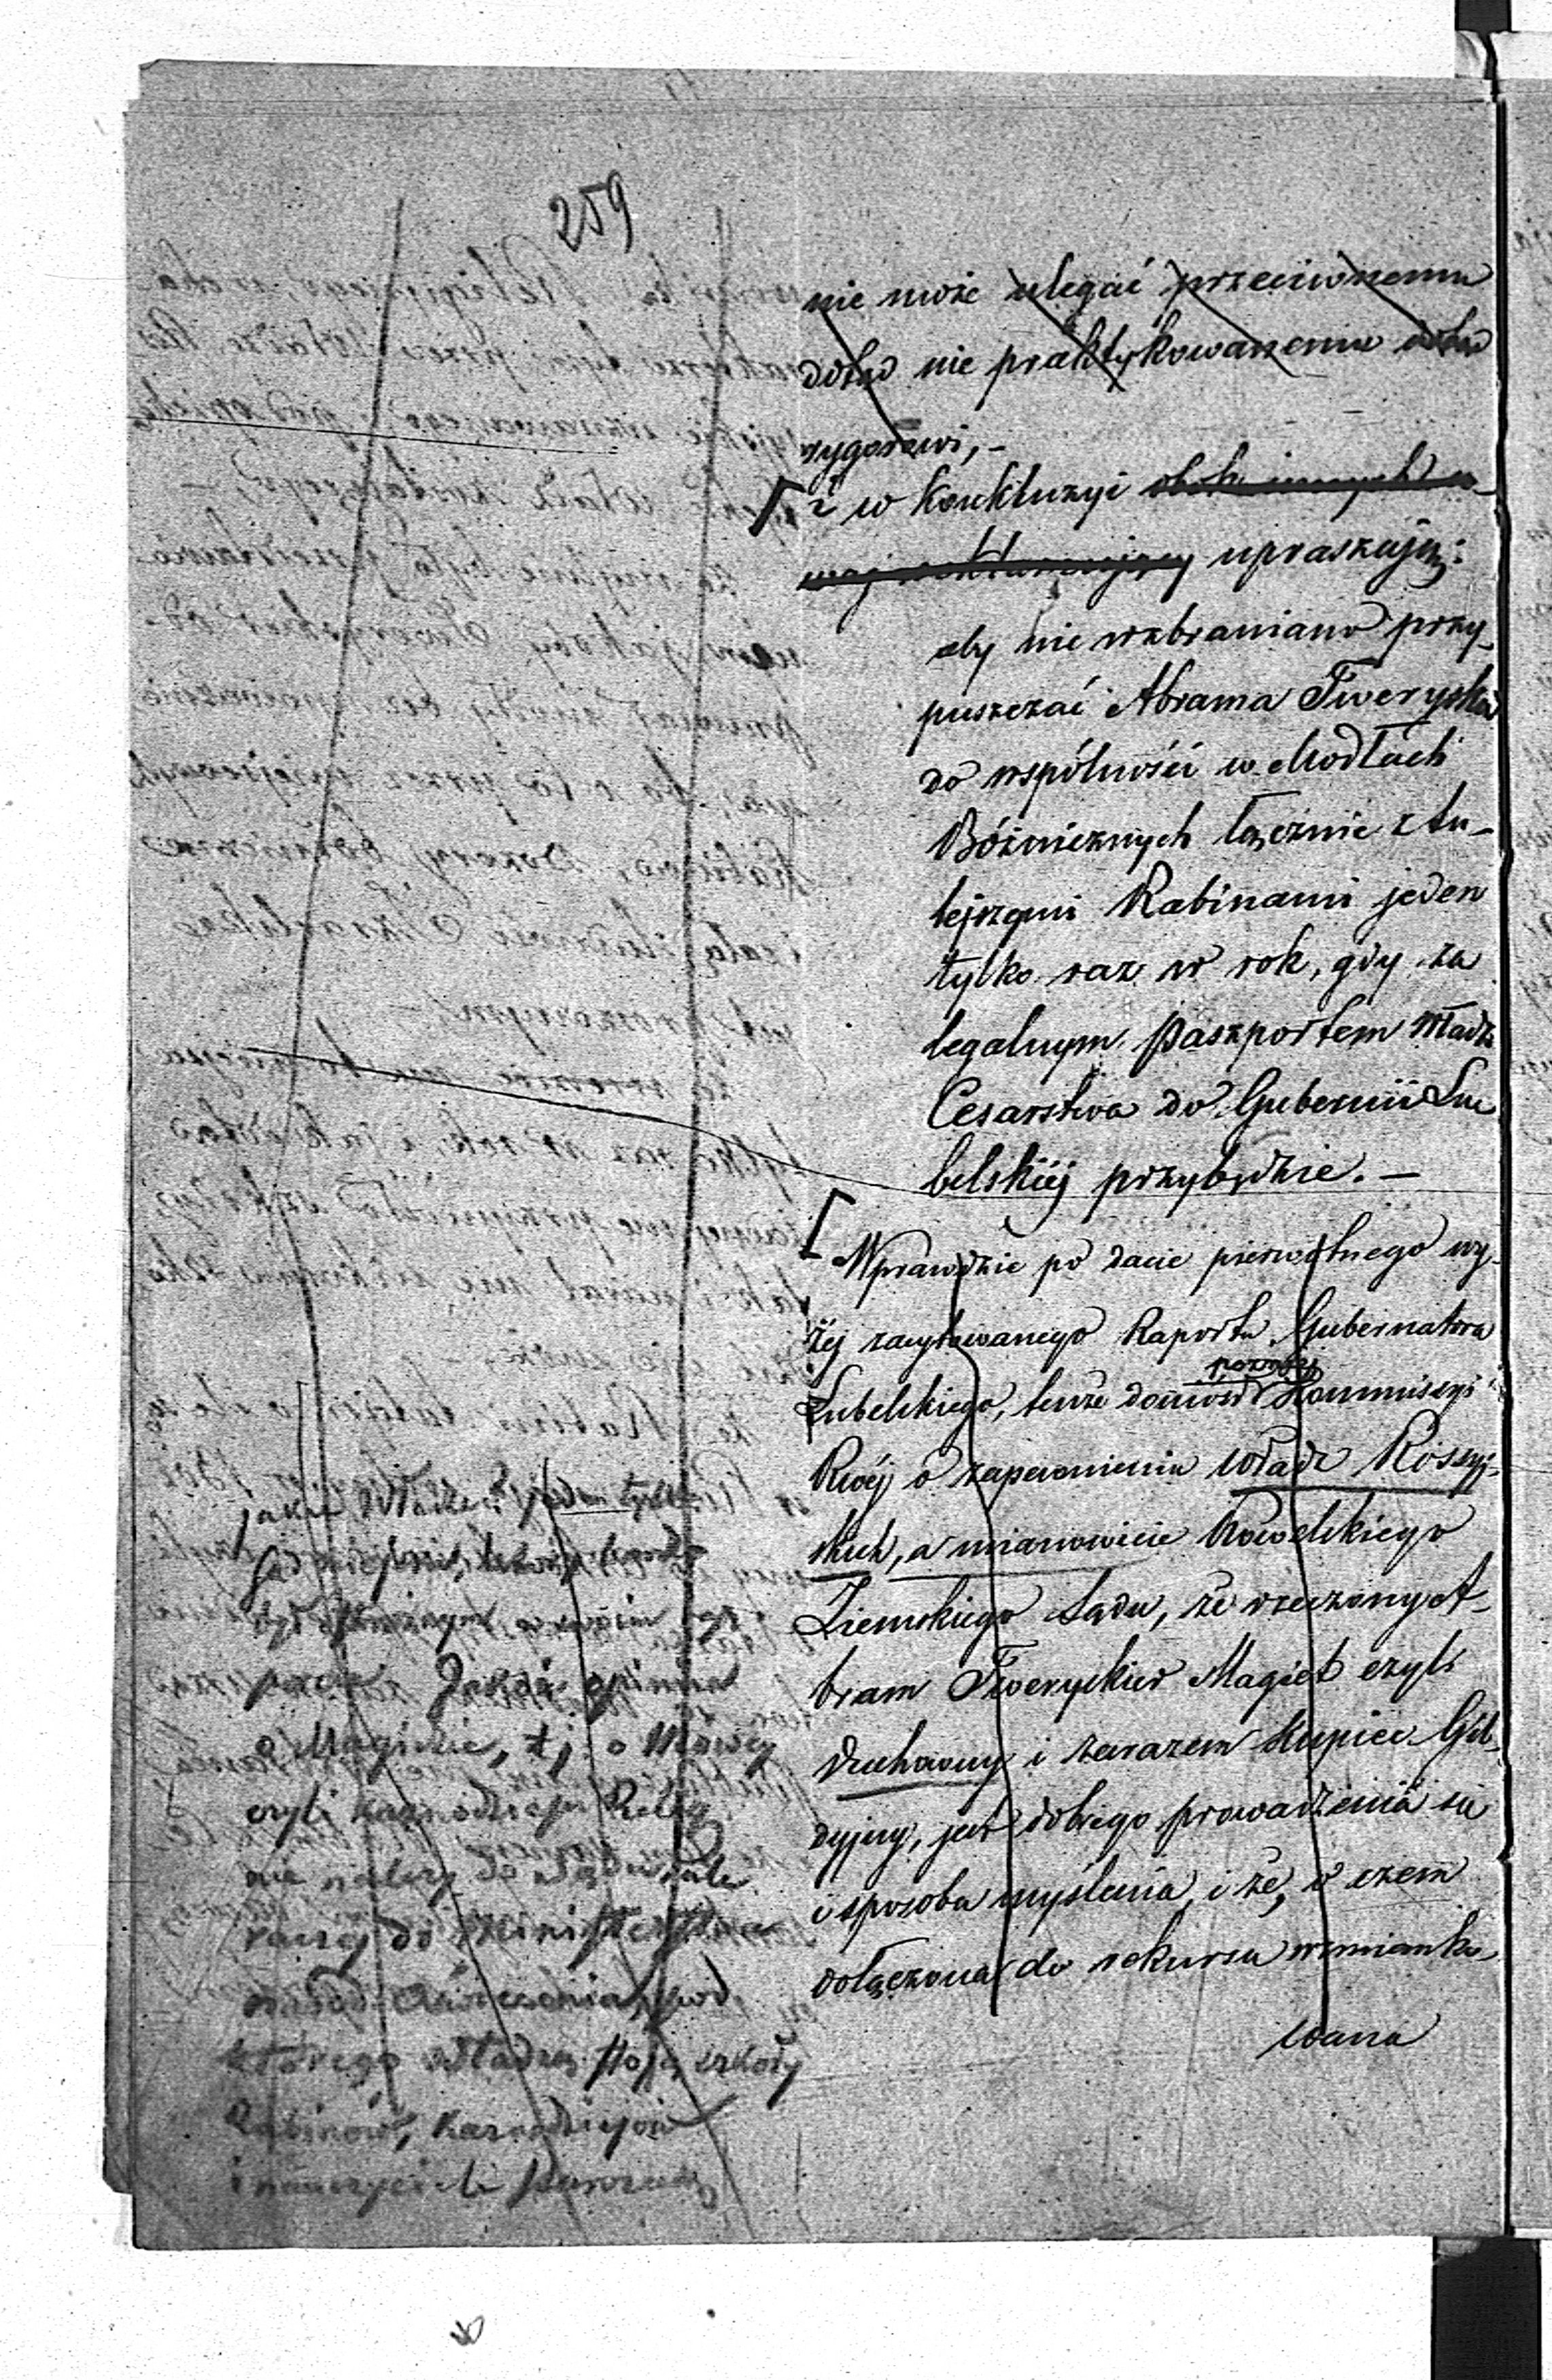 259
nie może ulegać przeciwnemu
dotąd nie praktykowanemu
rygorowi, -
i w Konkluzyi obok innych
upraszają:
aby nie wzbraniano przy-
puszczać Abrama Twerysk
do wspólności w Modłach
Bóżnicznych łącznie z tu-
tejszymi Rabinami jeden
tylko raz w rok, gdy za
legalnym paszportem Władz
Cesarstwa do Gubernii Lu
belskiéj przybędzie. -
Wprawdzie po dacie pierwotnego wy-
żéj zacytowanego Raportu Gubernatora
pozniéj
Lubelskiego, tenże doniósł Kommissyi
Rwéj o zapewnieniu Władz Rossyj-
skich, a mianowicie Kowelskiego
Ziemskiego Sądu, że rzeczony A-
bram Tweryskier Magid czyli
Duchowny i zarazem Kupiec Gil-
dyjny, jest dobrego prowadzenia się
i sposobu myślenia, i że, o czem
dołączona do rekursu wzmianko-
wana
jakie Władze? jeden tylko
Jakoż opinia
o Magidzie, tj. o Mówcy
czyli Kaznodziei Relig
nie należy do Sądu ale
raczej do Ministerstwa
Oświecenia, pod
którego władzą stoją szkoły
Rabinów, Kaznodziejów
i nauczycieli